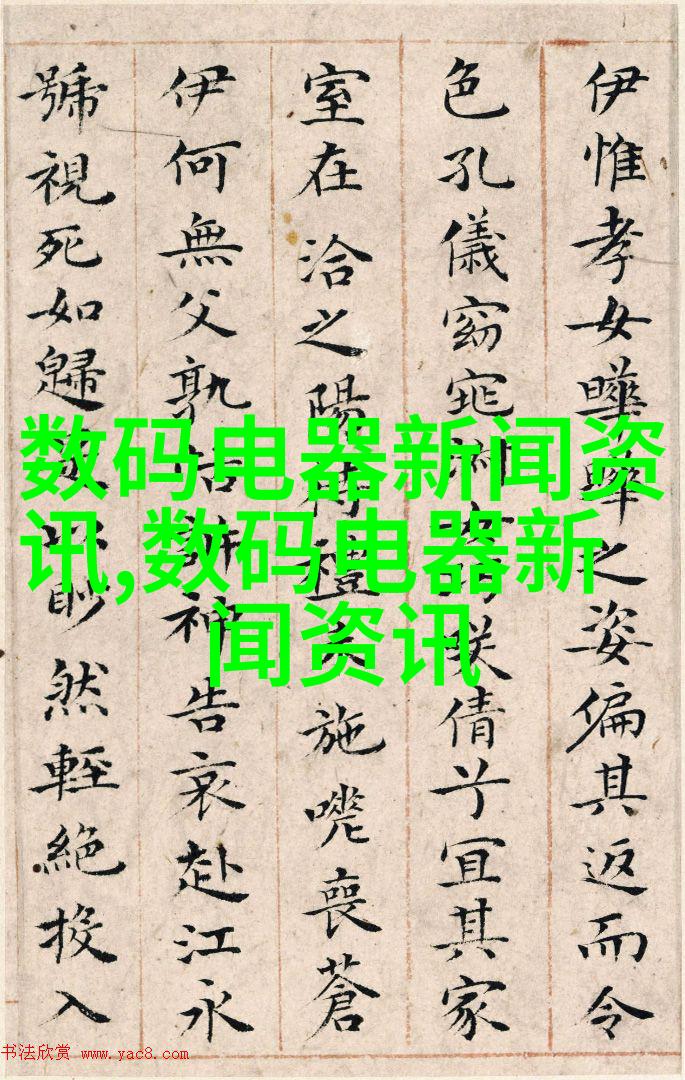 伊惟孝女曄曄之姿偏其返而令
色孔儀窈窕淑女巧咲倩兮宜其家
室在洽之陽待禮未施嗟喪蒼
伊何無父孰怙訴神告哀赴江永
號視死如歸是以眇然輕絕投入
数码电器新闻资
讯,数码电器新
闻资讯
书法欣赏 www.yac8.com